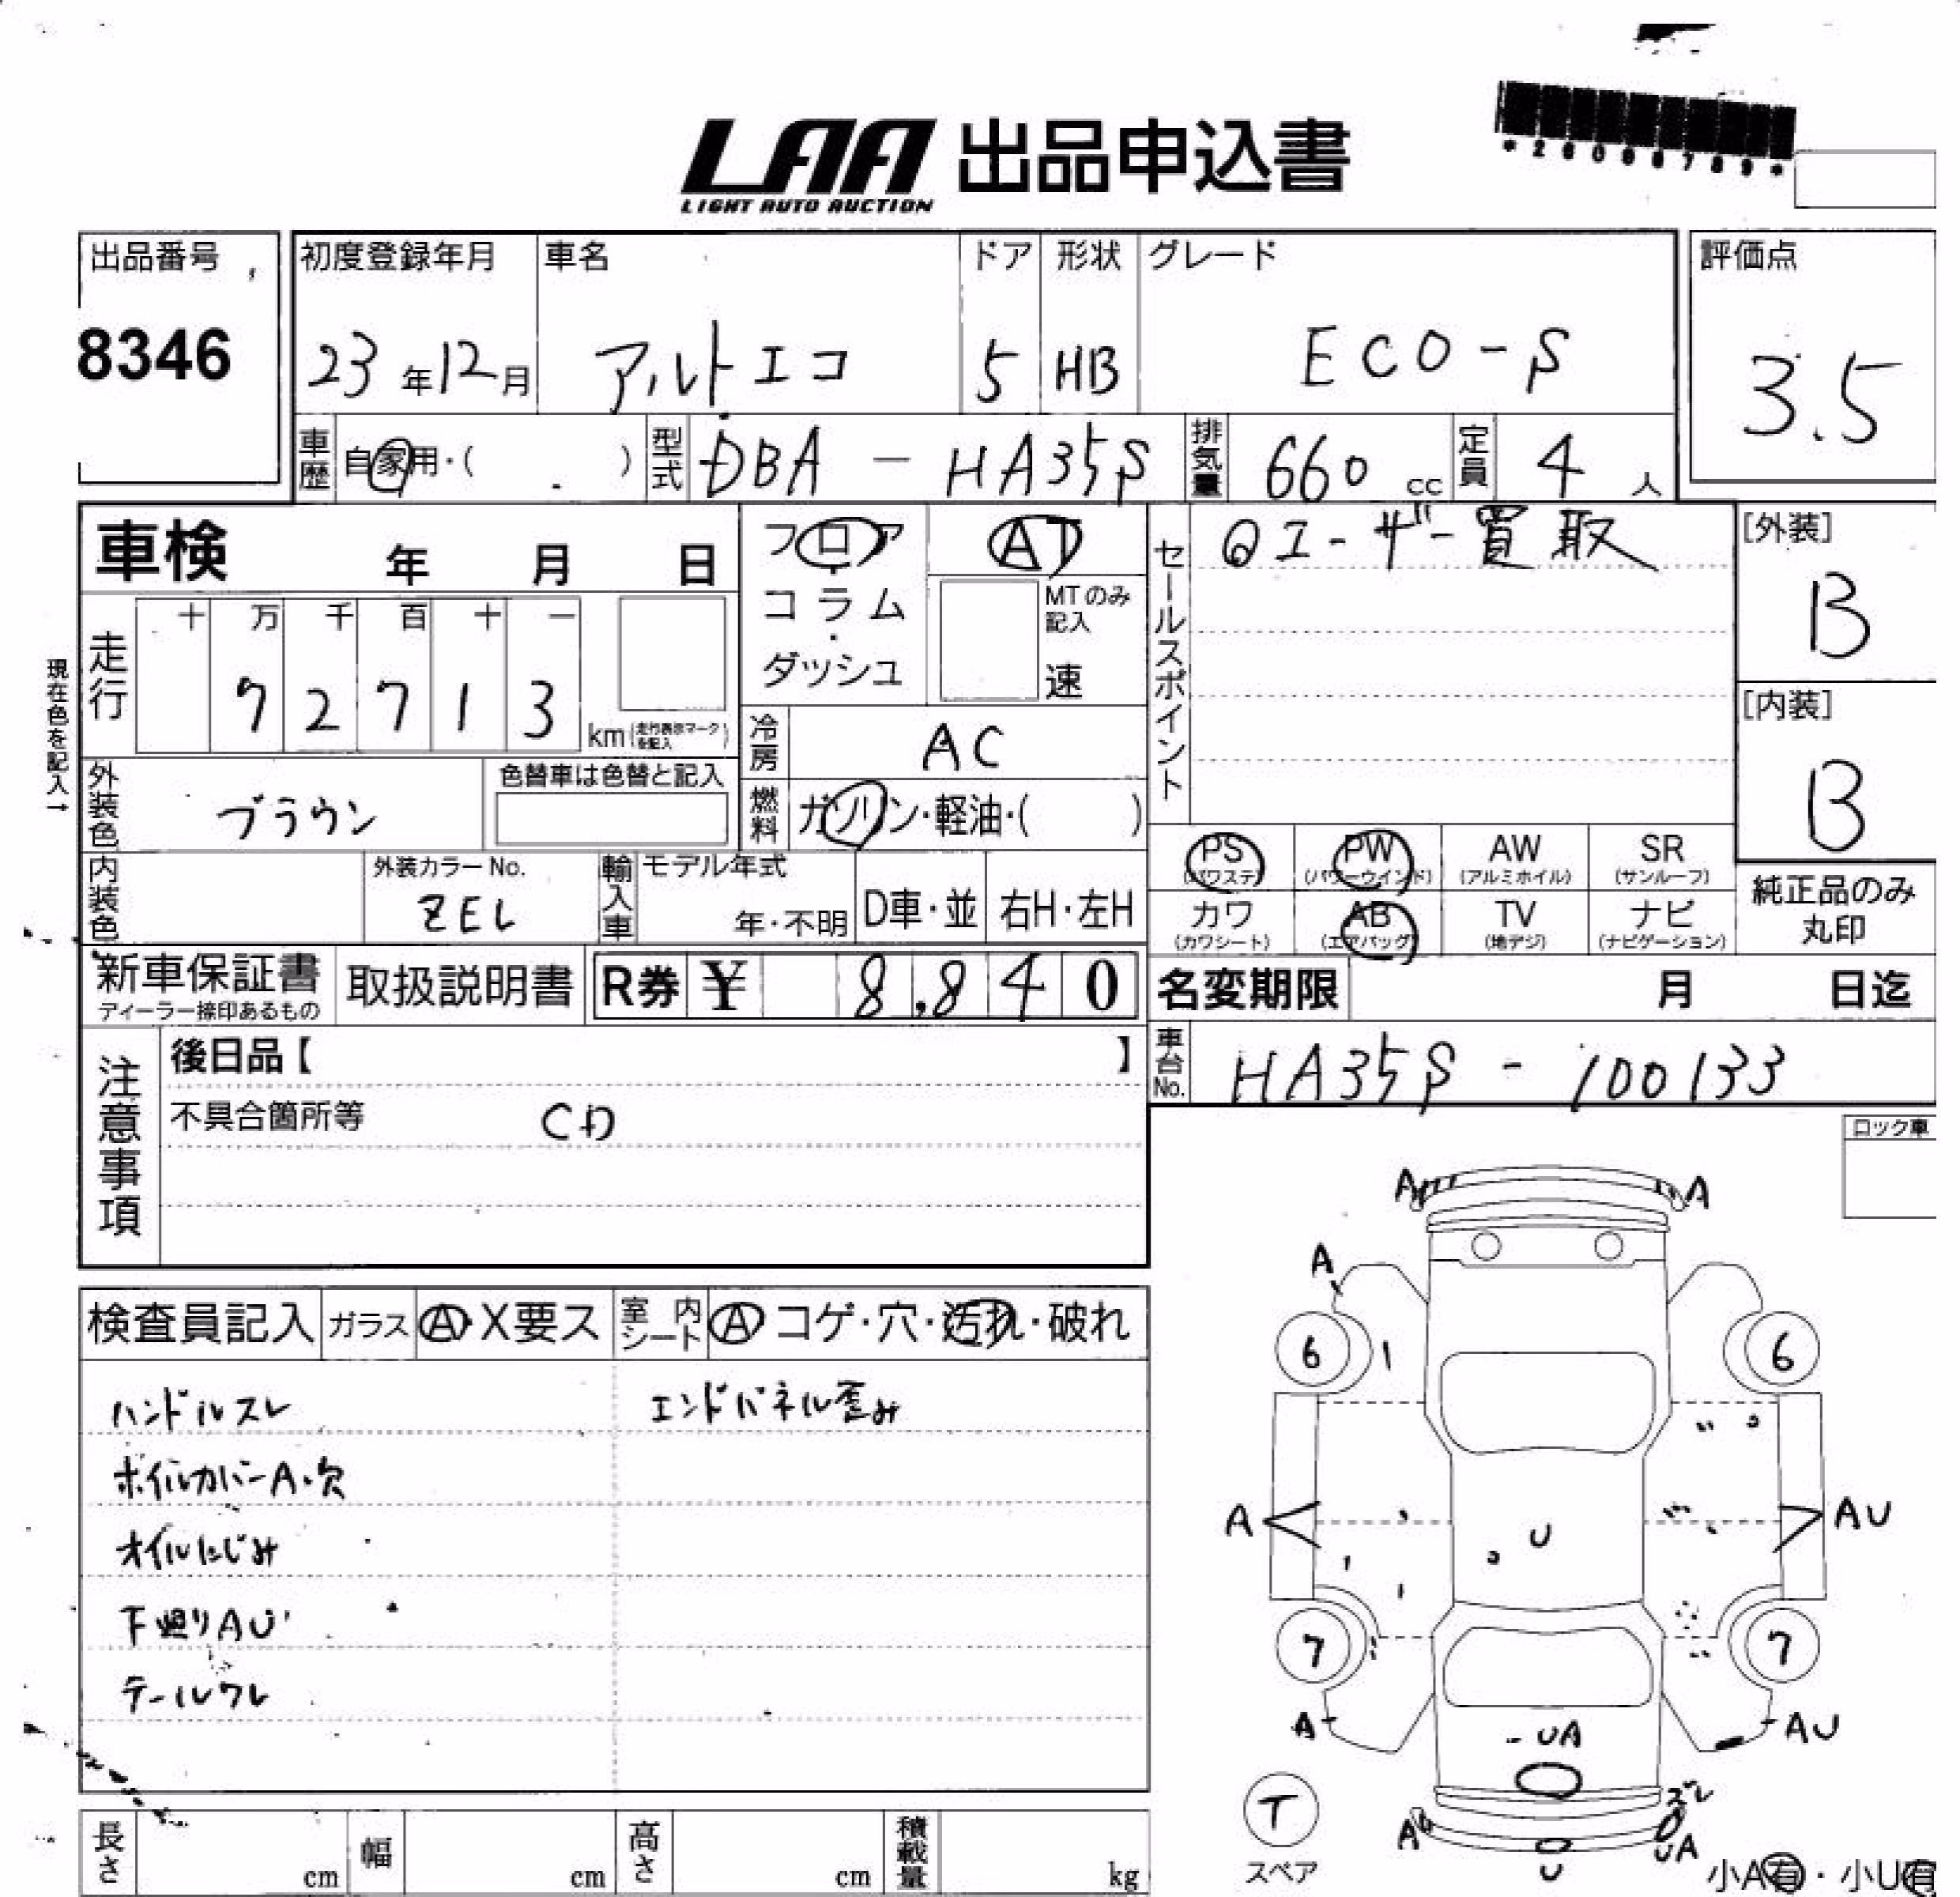 LAA 出品申込書
LIGHT AUTO AUCTION
出品番号
8346
初度登録年月
23年12月
車名
アルトエコ
ドア
5
形状
HB
グレード
ECO-S
評価点
3.5
車歴 自家用・( )
型式 DBA - HA35S
排気量 660 cc
定員 4 人
車検 年 月 日
フロア・コラム・ダッシュ
AT
MTのみ記入
速
セールスポイント
ユーザー買取
[外装]
B
[内装]
B
現在色を記入→
走行
十 万 千 百 十 一
92713
km(走行表示マークを記入)
冷房 AC
外装色 ブラウン
色替車は色替と記入
燃料 ガソリン・軽油・( )
PS (パワステ)
PW (パワーウインド)
AW (アルミホイル)
SR (サンルーフ)
カワ (カワシート)
AB (エアバッグ)
TV (地デジ)
ナビ (ナビゲーション)
純正品のみ丸印
内装色
外装カラーNo.
ZEL
輸入車
モデル年式
年・不明
D車・並
右H・左H
新車保証書
ディーラー捺印あるもの
取扱説明書
R券 ¥ 8,840
名変期限 月 日迄
注意事項
後日品【 】
不具合箇所等 CD
車台No. HA35S - 100133
ロック車
検査員記入
ガラス A・X要ス
室内シート A コゲ・穴・汚れ・破れ
ハンドルスレ
エンドパネル歪み
ホイルカバーA・欠
オイルにじみ
下廻りAU
テールワレ
A A
A
6 6
A U AU
7 7
A UA AU
T
スペア
A U ズレ UA
小A有・小U有
長さ cm
幅 cm
高さ cm
積載量 kg